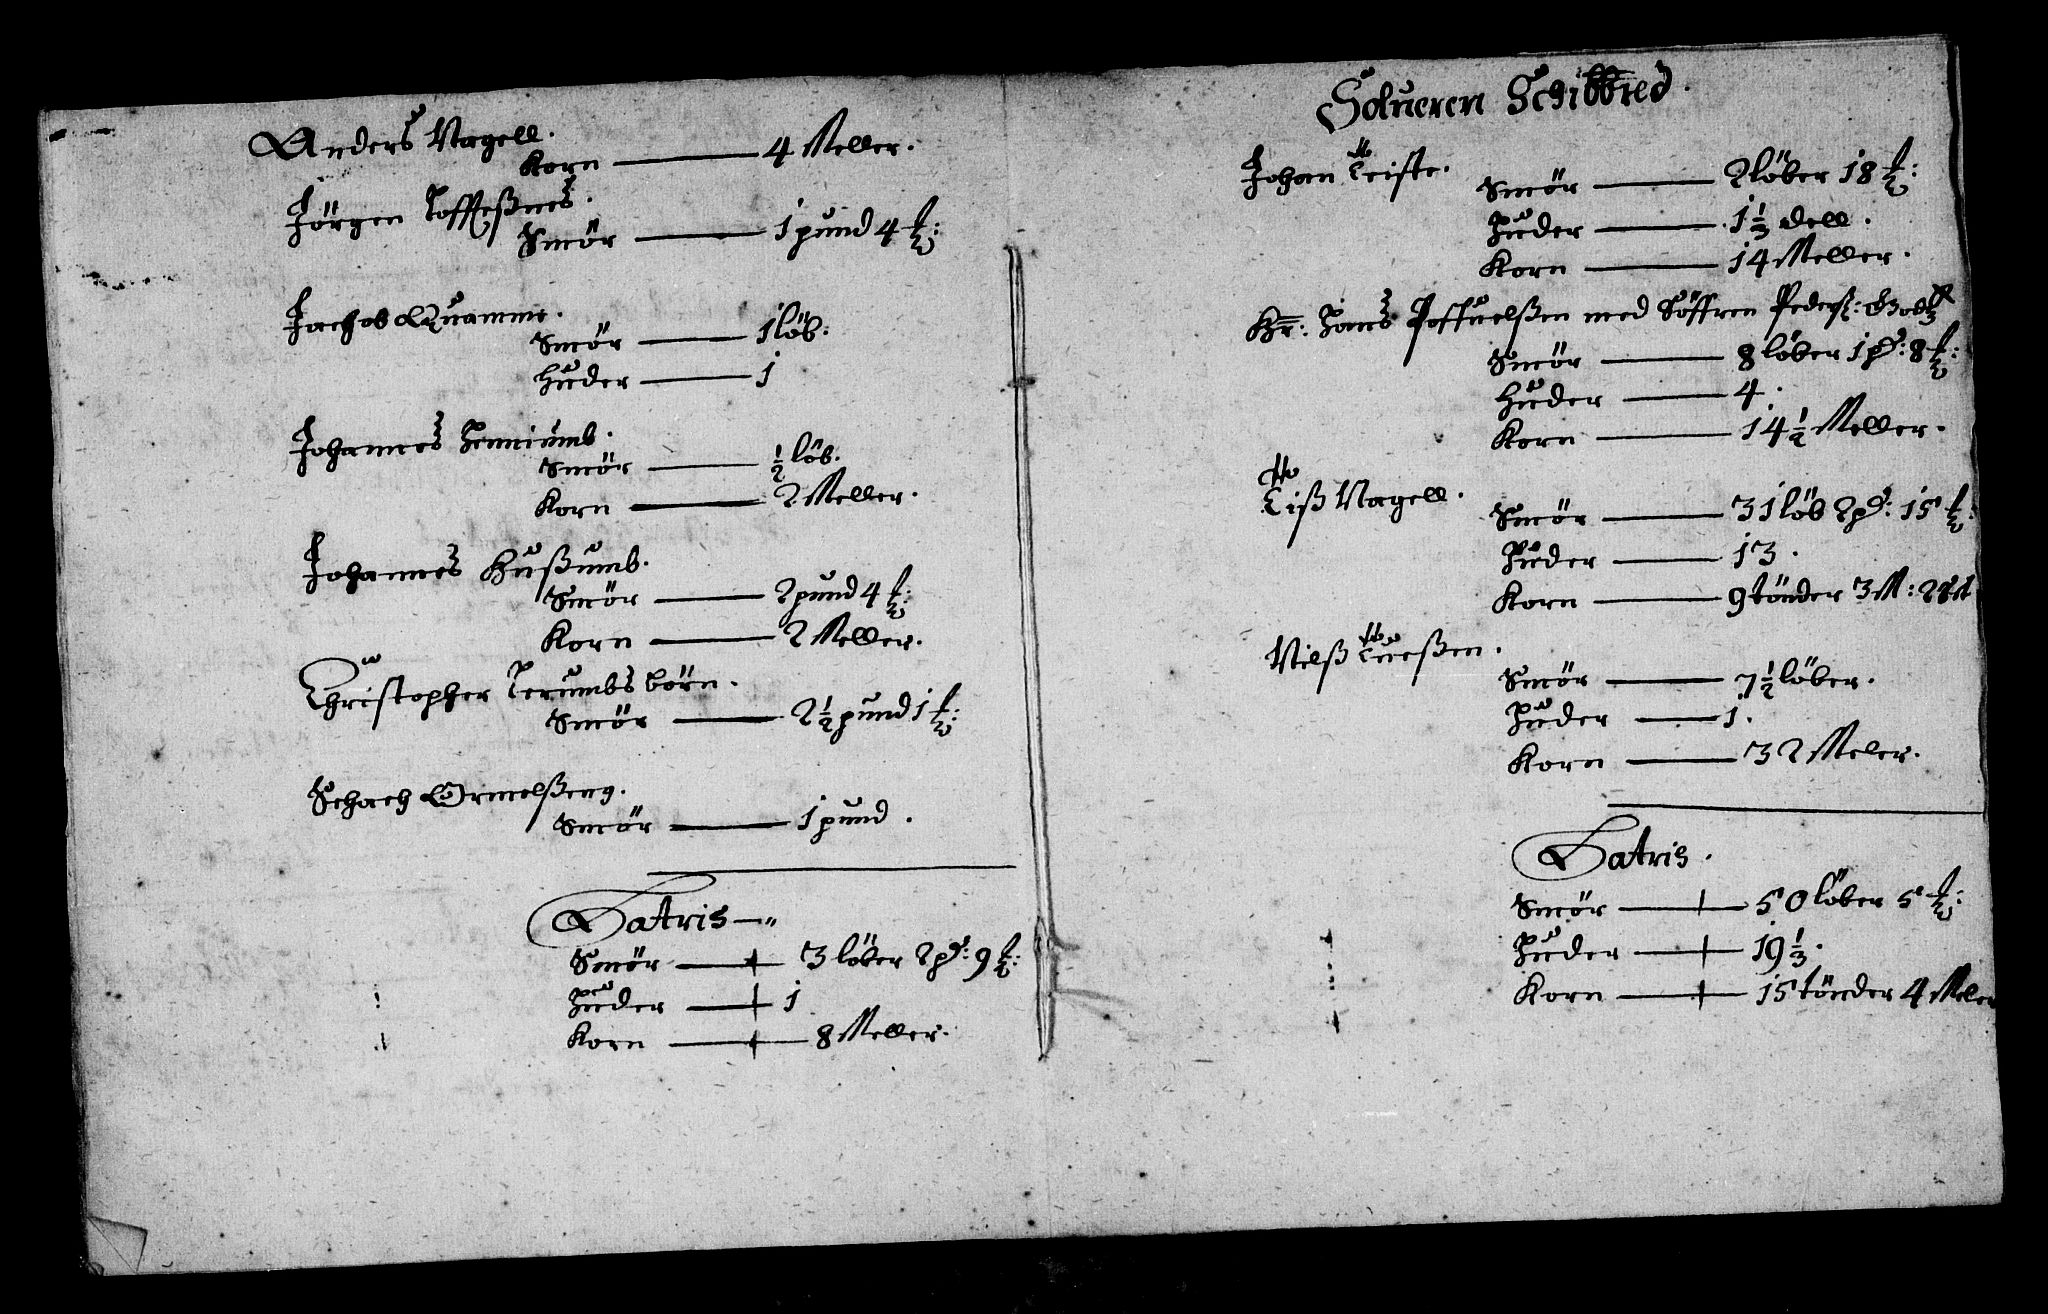 Anders Nagell.
Korn — 4 Meller.
Jörgen Toffteßnes.
Smör — 1 pund 4 ℔:
Jachob Quamme.
Smör — 1 löb:
Huder — 1
Johannes
Smör — ½ löb.
Korn — 2 Meller.
Johannes Hußumb.
Smör — 2 pund 4 ℔:
Korn — 2 Meller.
Christopher Lerumbs börn.
Smör — 2½ pund 1 ℔:
Schach
Smör — 1 pund.
Latris —"
Smör — 3 löber 2 pd: 9 ℔:
Huder — 1
Korn — 8 Meller.
Solueren Schibbred.
Johan Teiste.
Smör — 2 löber 18 ℔:
Huder — 1⅓ dell.
Korn — 14 Meller.
Hr: Hans med Söffren Peders:
Smör — 8 löber 1 pd: 8 ℔:
Huder — 4.
Korn — 14½ Meller.
Tiß Nagell.
Smör — 31 löb 2 pd: 15 ℔:
Huder — 13.
Korn — 9 tönder 3 M:
Nilß Tueßen.
Smör — 7½ löber.
Huder — 1.
Korn — 32 Meler.
Latris.
Smör — 50 löber 5 ℔:
Huder — 19⅓.
Korn — 15 tönder 4 Meler